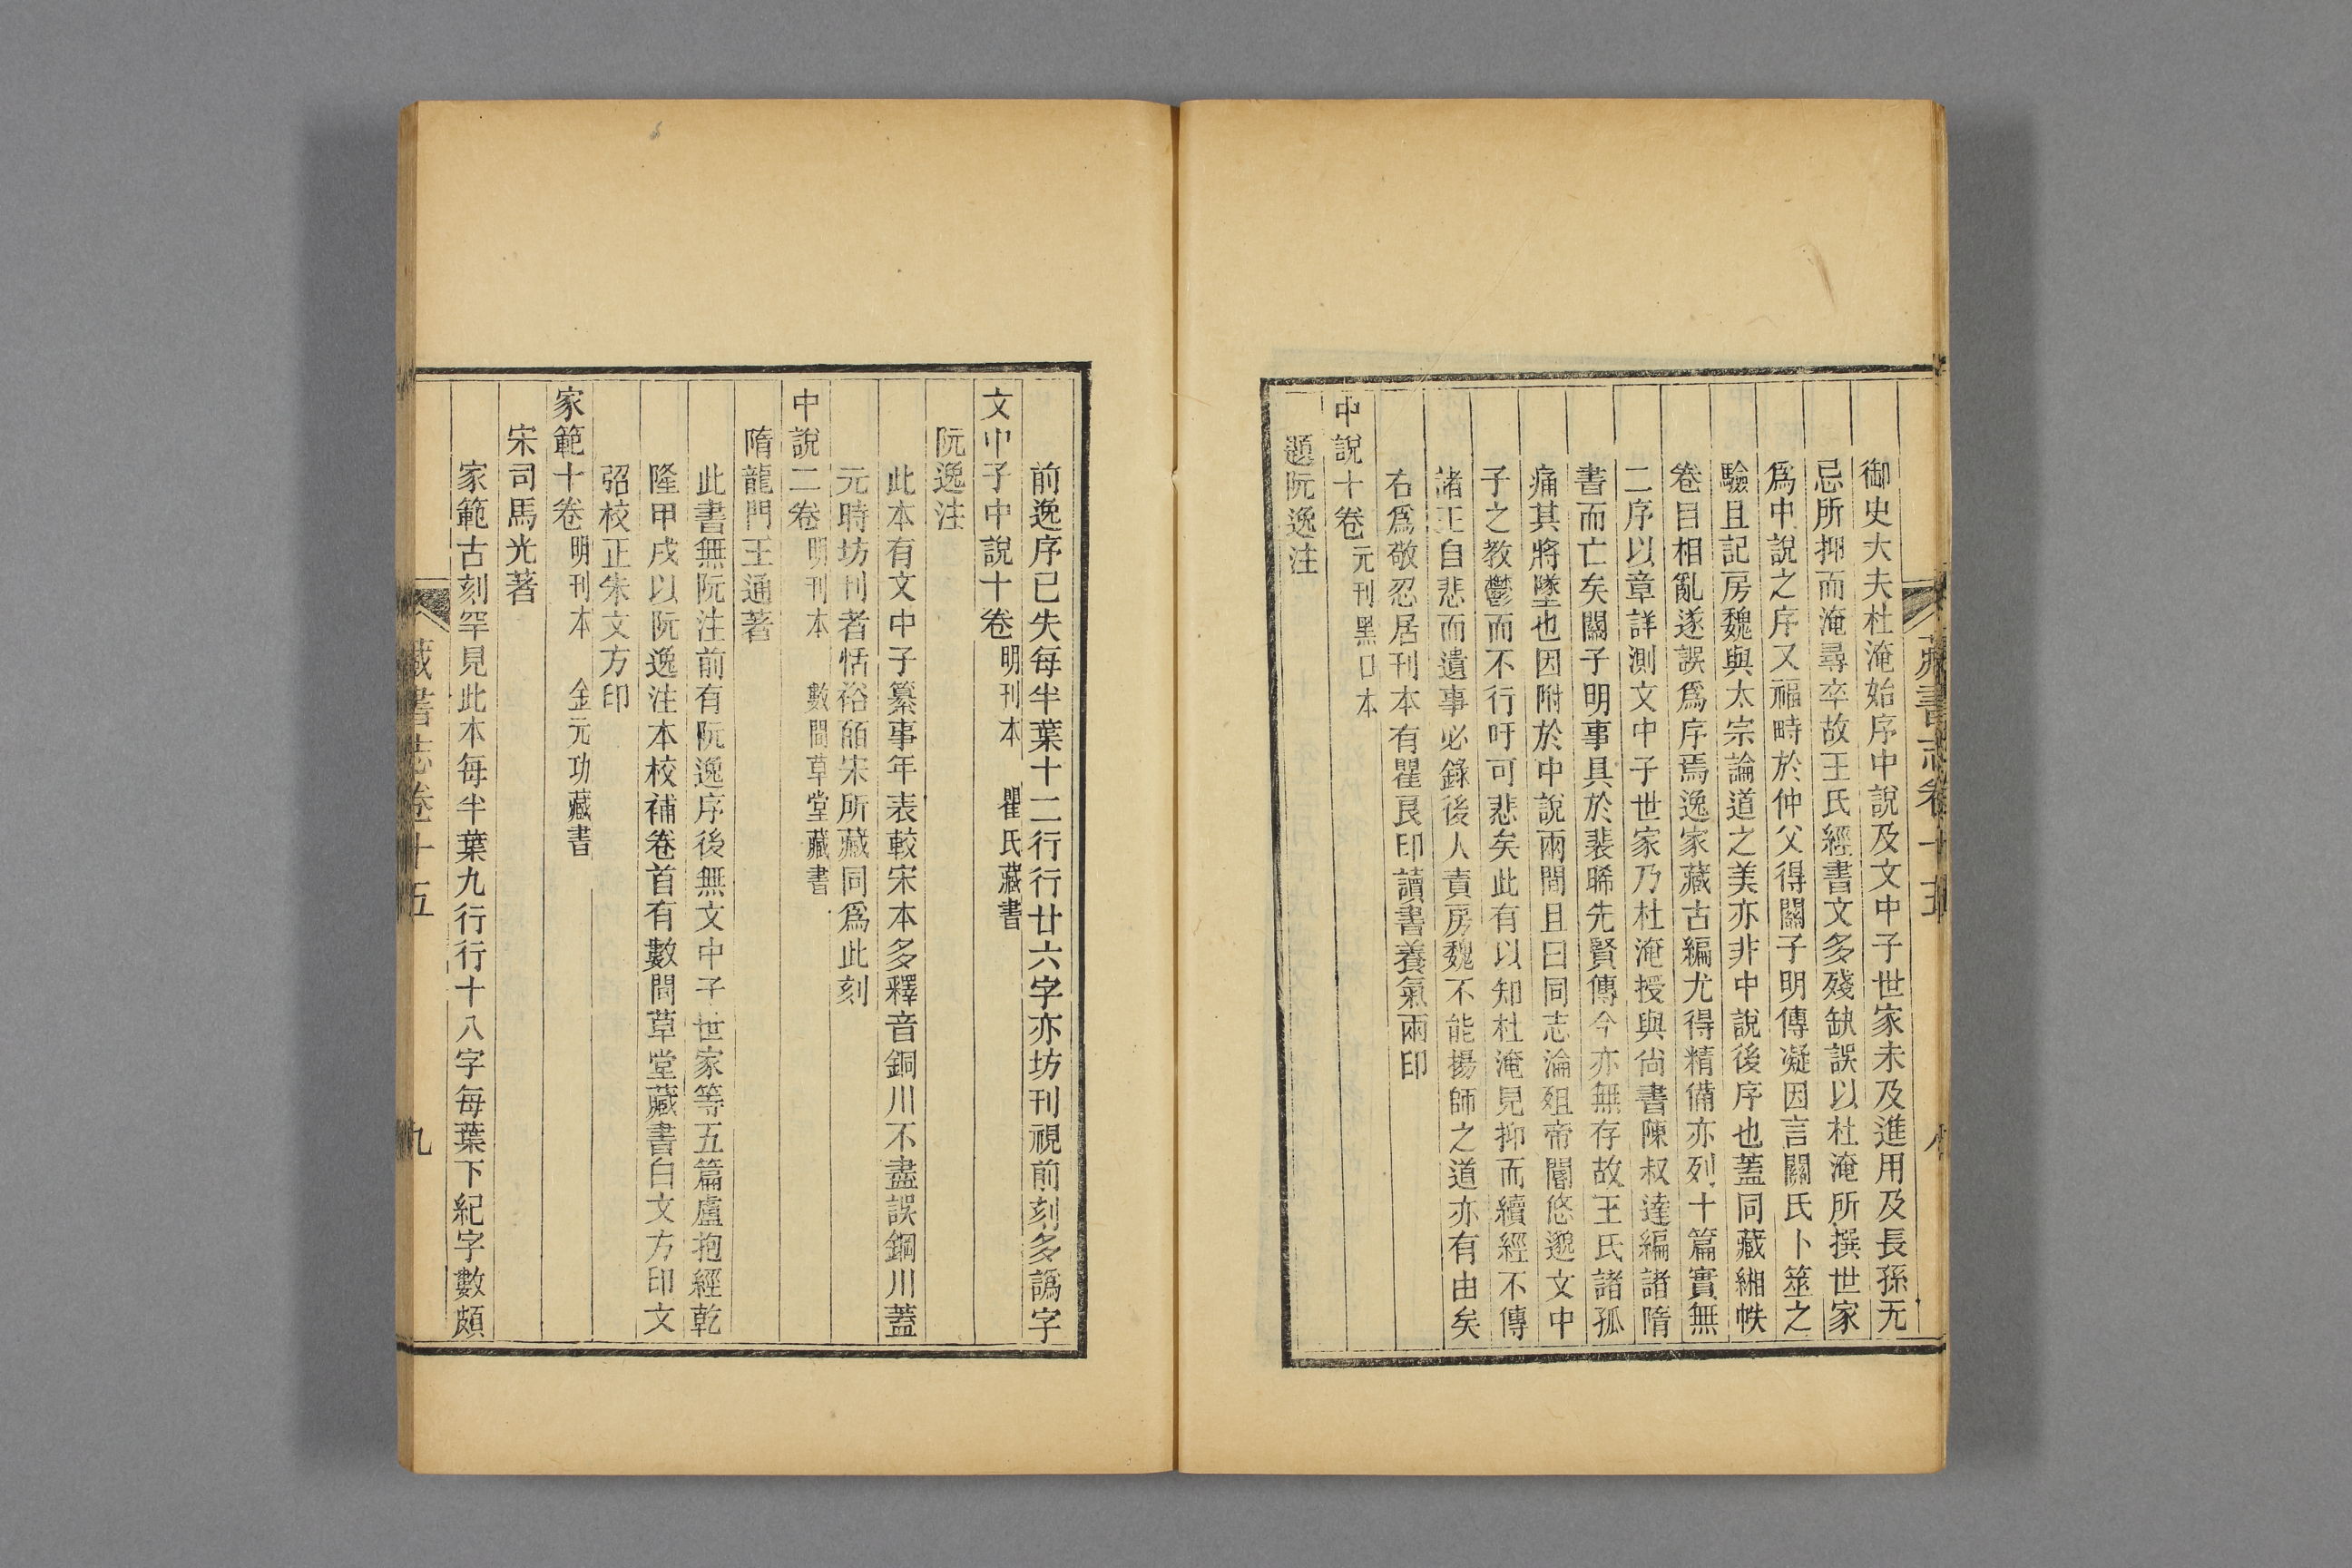 御史大夫杜淹始序中說及文中子世家未及進用及長孫无
忌所抑而淹尋卒故王氏經書文多殘缺誤以杜淹所撰世家
爲中說之序又福畤於仲父得關子明傳凝因言關氏卜筮之
驗且記房魏與太宗論道之美亦非中說後序也蓋同藏緗帙
卷目相亂遂誤爲序焉逸家藏古編尤得精備亦列十篇實無
二序以章詳測文中子世家乃杜淹授與尙書陳叔達編諸隋
書而亡矣關子明事具於裴晞先賢傳今亦無存故王氏諸孤
痛其將墜也因附於中說兩間且曰同志淪殂帝閽悠邈文中
子之教鬱而不行吁可悲矣此有以知杜淹見抑而續經不傳
諸王自悲而遺事必錄後人責房魏不能揚師之道亦有由矣
右爲敬忍居刊本有瞿艮印讀書養氣兩印
中說十卷 元刊黑口本
題阮逸注
前逸序已失每半葉十二行行廿六字亦坊刊視前刻多譌字
文中子中說十卷 明刊本 瞿氏藏書
阮逸注
此本有文中子纂事年表較宋本多釋音銅川不盡誤鋼川蓋
元時坊刊者恬裕皕宋所藏同爲此刻
中說二卷 明刊本 數間草堂藏書
隋龍門王通著
此書無阮注前有阮逸序後無文中子世家等五篇盧抱經乾
隆甲戌以阮逸注本校補卷首有數間草堂藏書白文方印文
弨校正朱文方印
家範十卷 明刊本 金元功藏書
宋司馬光著
家範古刻罕見此本每半葉九行行十八字每葉下紀字數頗
藏書志卷十五 九